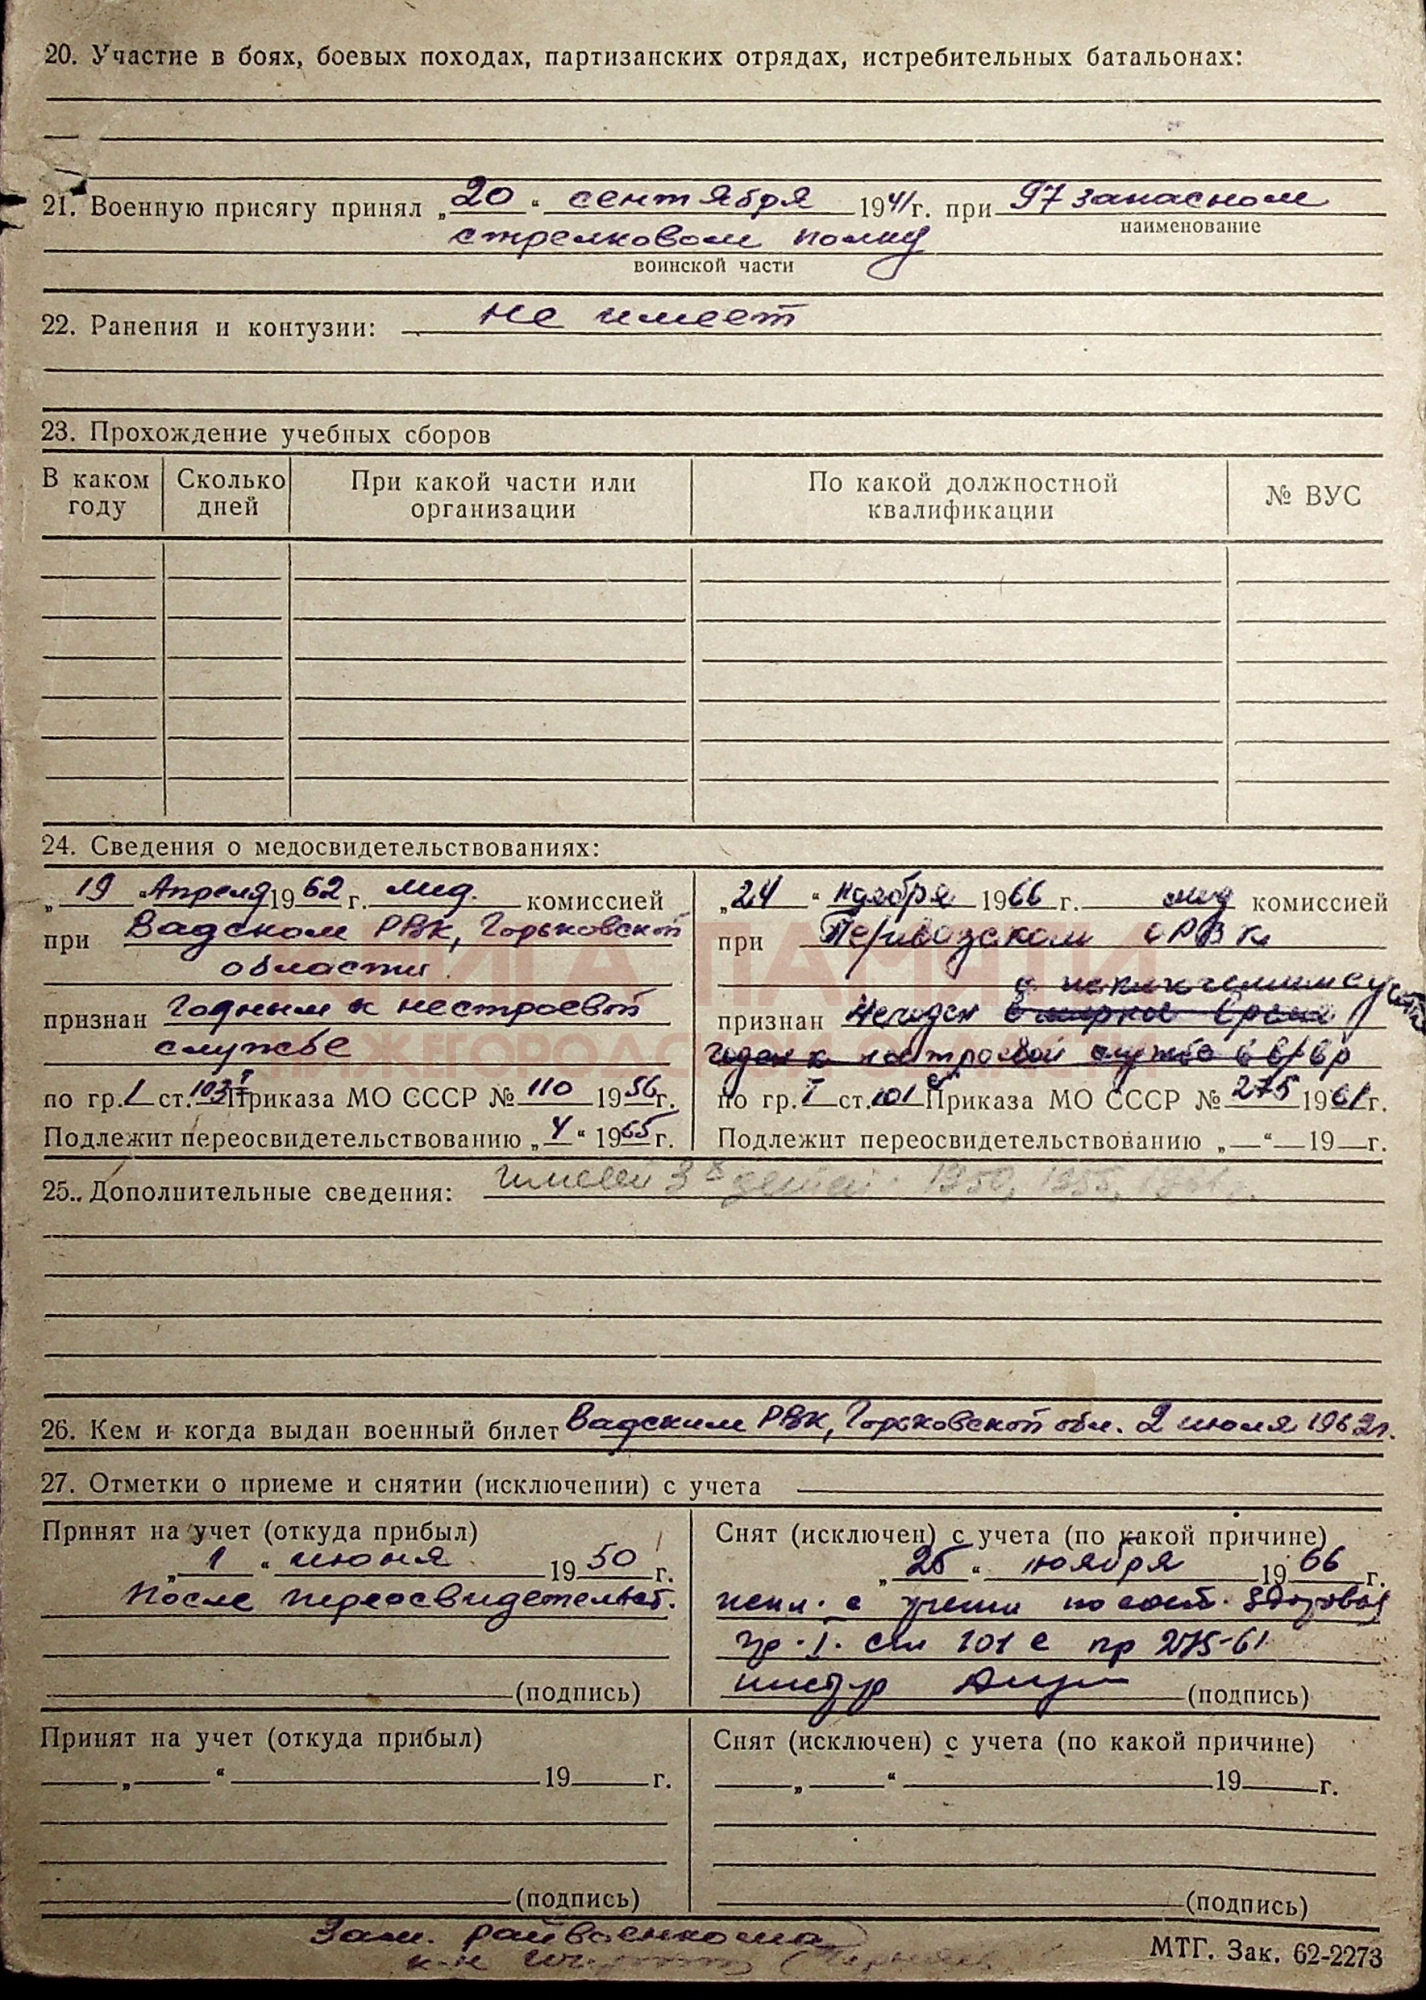 20. Участие в боях, боевых походах, партизанских отрядах, истребительных батальонах:
21. Военную присягу принял „20“ сентября 1941г. при 97 запасном
наименование
стрелковом полку
воинской части
22. Ранения и контузии: не имеет
23. Прохождение учебных сборов
В каком году
Сколько дней
При какой части или организации
По какой должностной квалификации
№ ВУС
24. Сведения о медосвидетельствованиях:
„19“ Апреля 1962 г. мед. комиссией
при Вадском РВК, Горьковской
области
признан Годным к нестроевой
службе
по гр. I ст. 103 Приказа МО СССР № 110 1956г.
Подлежит переосвидетельствованию „4“ 1965г.
„24“ ноября 1966г. мед комиссией
при Перевозском ОРВК
с исключением с
признан Негоден в мирное время
годен к нестроевой службе в в/вр
по гр. I ст. 101 Приказа МО СССР № 275 1961г.
Подлежит переосвидетельствованию „—“ 19—г.
КНИГА ПАМЯТИ
НИЖЕГОРОДСКОЙ ОБЛАСТИ
25. Дополнительные сведения: имеет 3х детей 1950, 1955,
26. Кем и когда выдан военный билет Вадским РВК, Горьковской обл. 2 июля 1962г.
27. Отметки о приеме и снятии (исключении) с учета
Принят на учет (откуда прибыл)
„1“ июня 1950 г.
После переосвидетельст.
(подпись)
Снят (исключен) с учета (по какой причине)
„25“ ноября 1966 г.
искл. с учета по сост. здоровья
гр. I. ст 101 с пр 275-61
(подпись)
Принят на учет (откуда прибыл)
„ “ 19 г.
(подпись)
Снят (исключен) с учета (по какой причине)
„ “ 19 г.
(подпись)
Зам. райвоенкома
МТГ. Зак. 62-2273